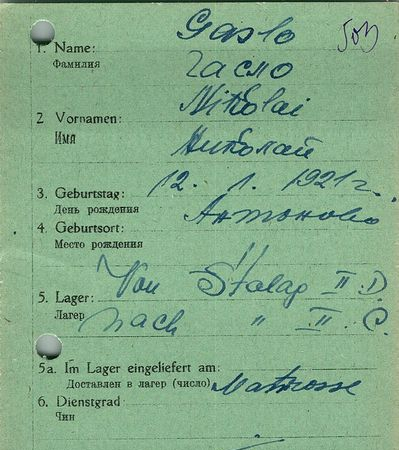 Gaslo
1. Name:
Фамилия
Гасло
Nikolai
2 Vornamen:
Имя
Николай
3. Geburtstag: 12. 1. 1921 г.
День рождения
Антоново
4. Geburtsort:
Место рождения
Von Stalag II. D.
5. Lager:
Лагер nach " II. C.
5a. Im Lager eingeliefert am:
Доставлен в лагер (число) Matrose
6. Dienstgrad:
Чин